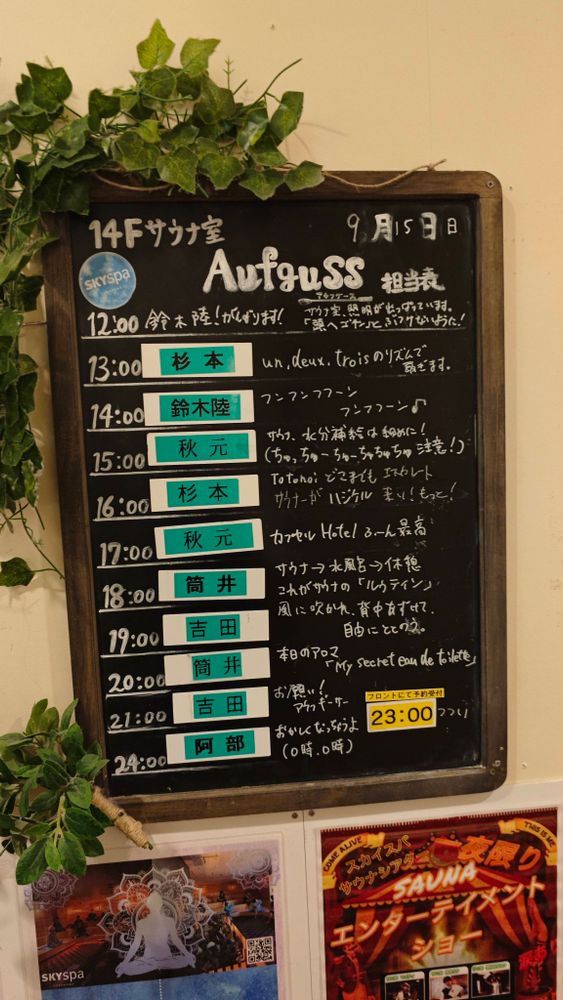 14Fサウナ室
9月15日日
SKYSPA
Aufguss 担当表
アウフグース
12:00 鈴木陸!がんばります!
サウナ室、照明が出っぱっています。
「頭へゴチン」とぶつけないように!
13:00 杉本 un, deux, troisのリズムで
扇ぎます。
14:00 鈴木陸 フンフンフフーン
フンフフーン♪
15:00 秋元 サウナ、水分補給は細めに!
(ちゅっちゅーちゅーちゅちゅちゅ注意!)
16:00 杉本 Totonoi どこまでも エスカレート
サウナーが ハジケル 来い!もっと!
17:00 秋元 カプセル Hotel ふーん 最高
18:00 筒井 サウナ→水風呂→休憩
これがサウナの「ルウティン」
19:00 吉田 風に吹かれ、背中あずけて、
自由にととのう。
20:00 筒井 本日のアロマ
「My secret eau de toilette」
21:00 吉田 お願い!
アウフギーサー
フロントにて予約受付
23:00
24:00 阿部 おかしくなっちゃうよ
(0時、0時)
COME ALIVE
THIS IS ME
スカイスパ
サウナシアター
一夜限り
SAUNA
エンターテイメント
ショー
SKYSPA